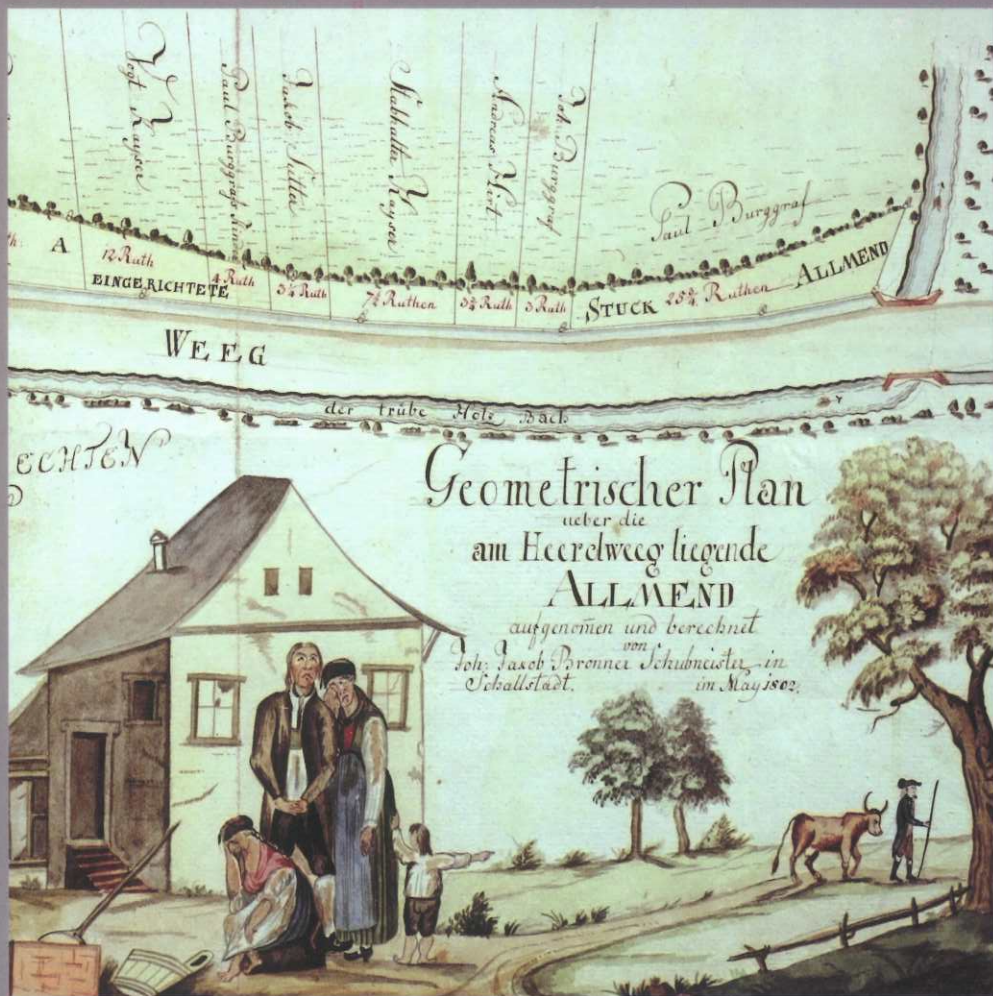 Vogt Kayser
Paul Burggrafs Kinder
Jakob Sutter
Stabhalter Kayser
Andreas Hirt
Joh. Burggraf
Paul Burggraf
A
12 Ruth
4 Ruth
3¼ Ruth
7½ Ruthen
3¾ Ruth
3 Ruth
25¾ Ruthen
EINGERICHTETE STUCK ALLMEND
WEEG
der trübe Holz Bach
ECHTEN
Geometrischer Plan
ueber die
am Heerelweeg liegende
ALLMEND
aufgenom̄en und berechnet
von
Joh: Jasob Bronner Schulmeister in
Schallstadt. im May 1802.